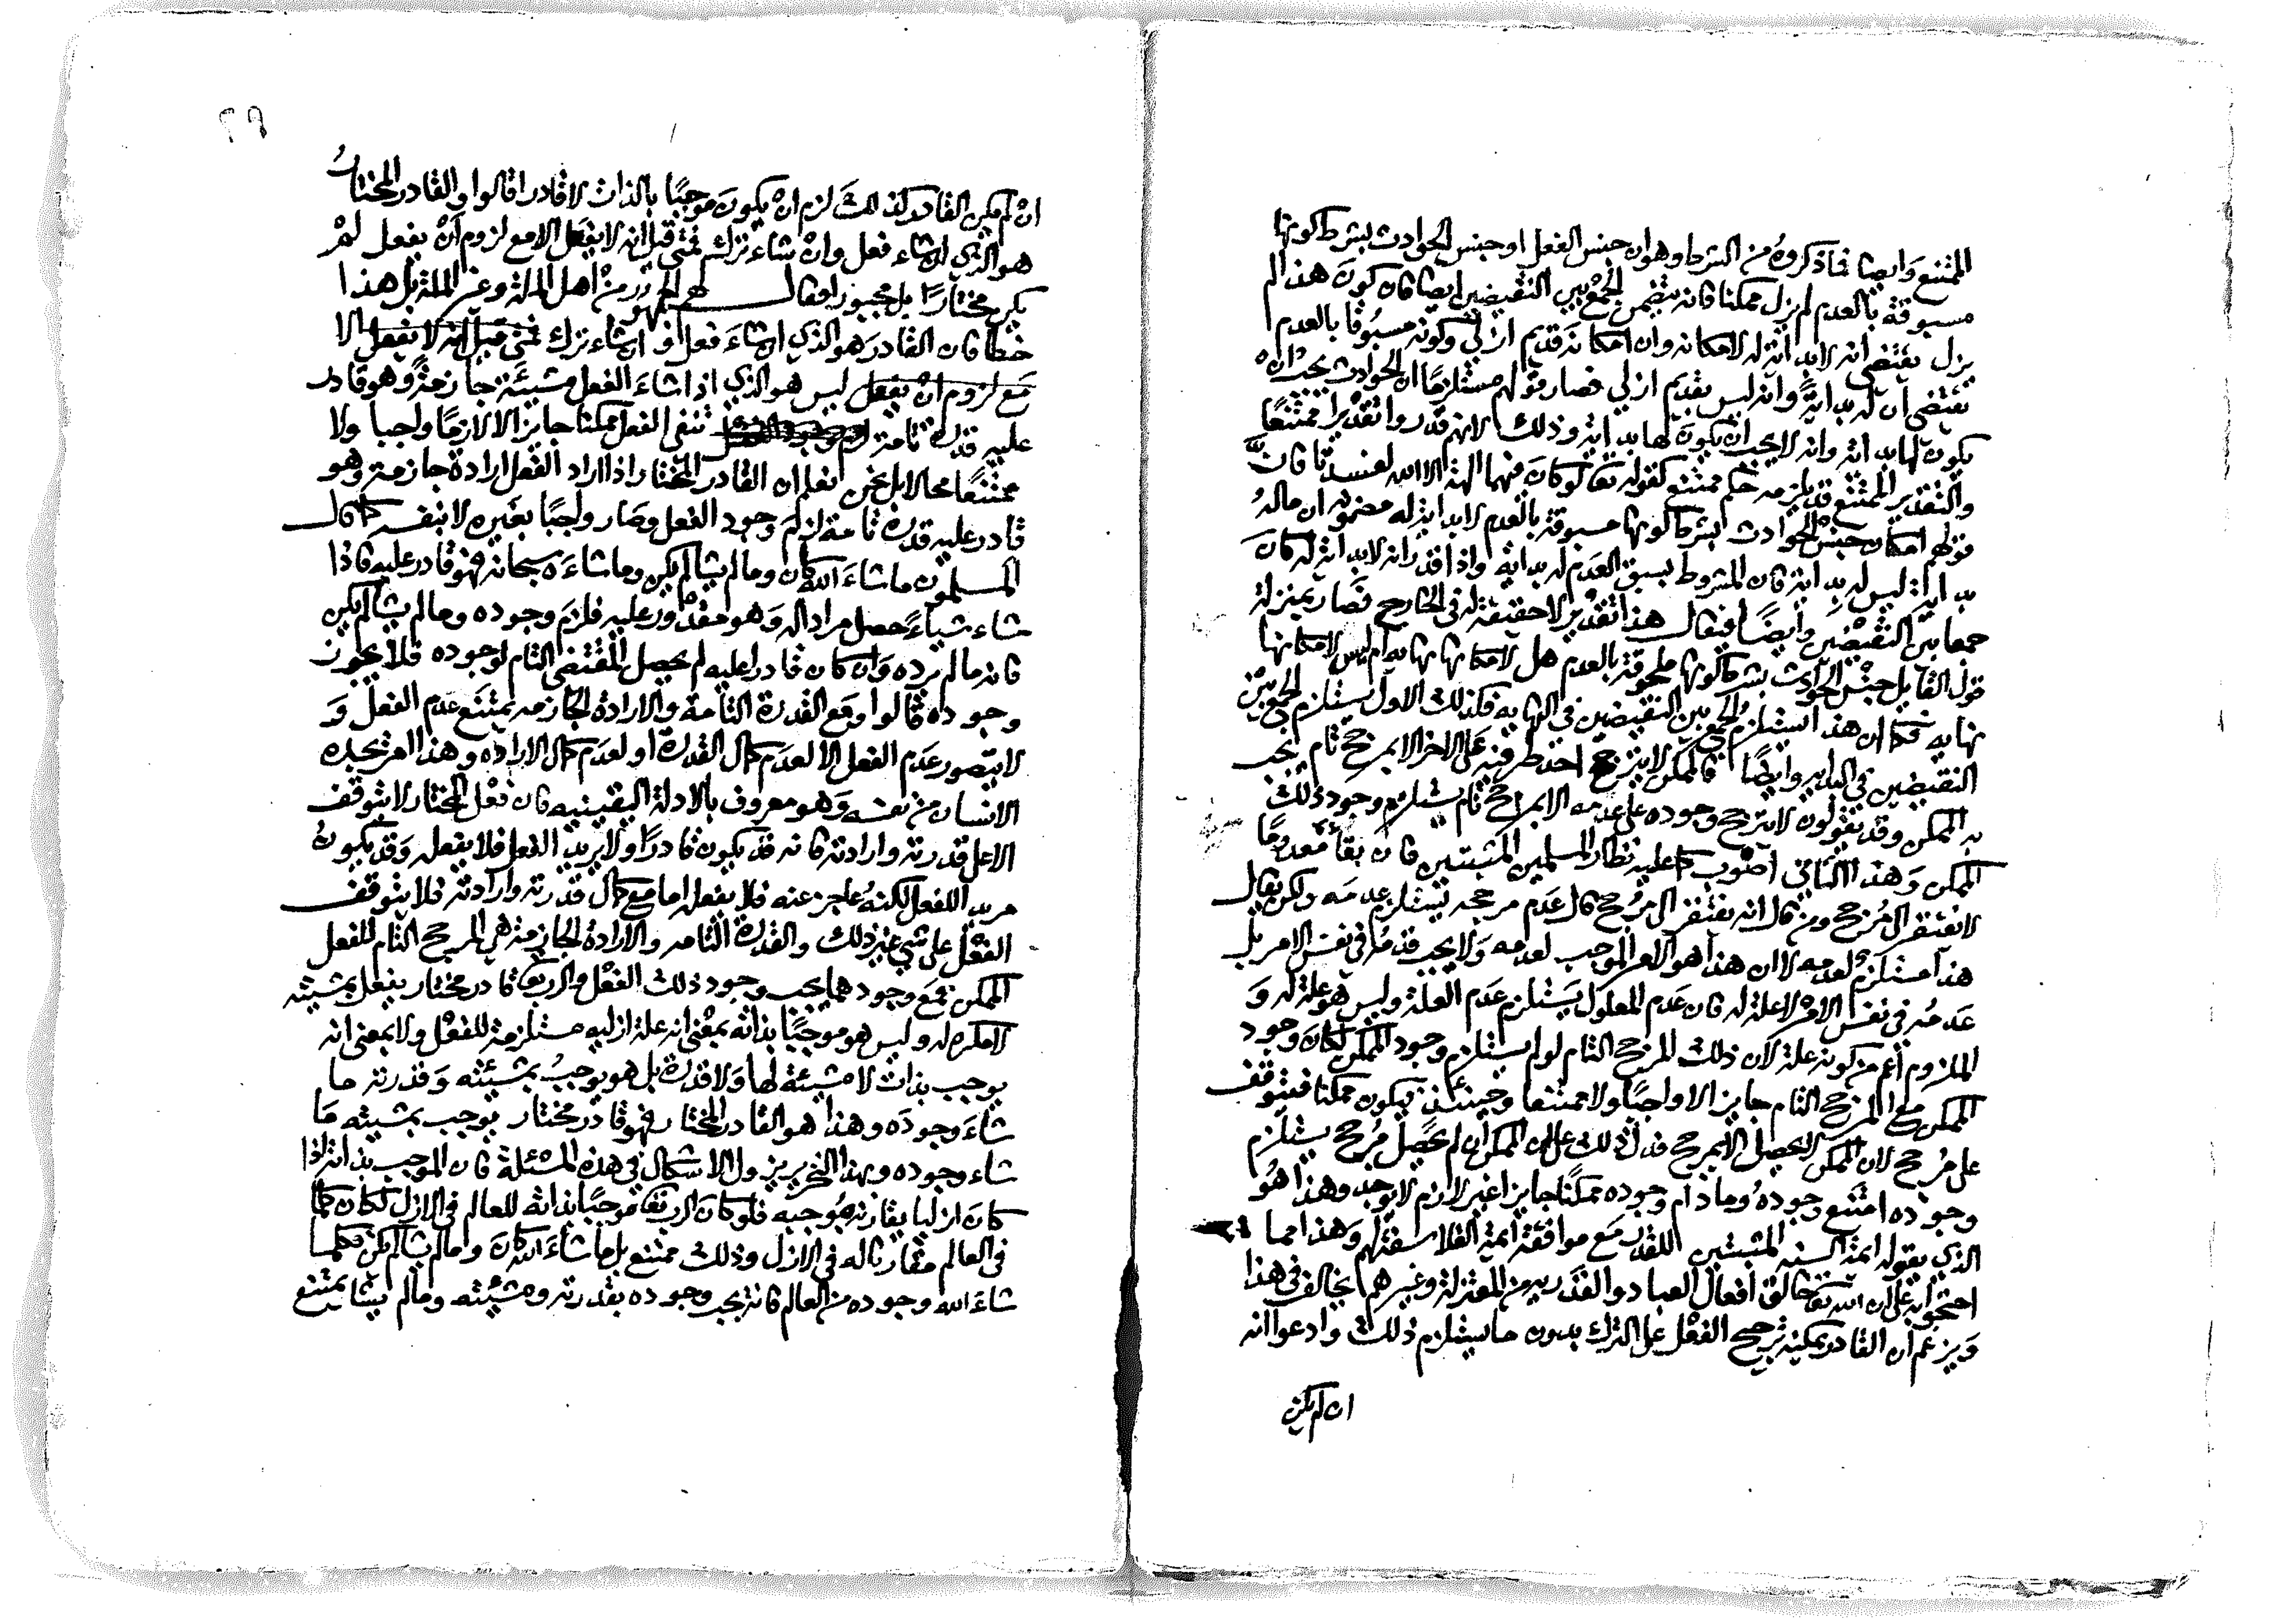 الممتنع وايضا فما ذكروه من الشرط وهو ان جنس الفعل او جنس الحوادث بشرط كونها
مسبوقة بالعدم لم يزل ممكنا فانه يتضمن الجمع بين النقيضين ايضا فان كون هذا لم
يزل يقتضي انه لا بداية لامكانه وان امكانه قديم ازلي وكونه مسبوقا بالعدم
يقتضي ان له بداية وانه ليس بقديم ازلي فصار قولهم مستلزما ان الحوادث يجب ان
يكون لها بداية وانه لا يجب ان يكون لها بداية وذلك لانهم قدروا تقديرا ممتنعا
والتقدير الممتنع قد يلزمه حكم ممتنع كقوله تعا لو كان فيهما الهة الا الله لفسدتا فان
قولهم امكان جنس الحوادث بشرط كونها مسبوقة بالعدم لا بداية له مضمونه ان ماله
بداية ليس له بداية فان المشروط بسبق العدم له بداية واذا قدر انه لا بداية له كان
جمعا بين النقيضين وايضا فيقال هذا تقدير لا حقيقة له في الخارج فصار بمنزلة
قول القايل جنس الحوادث بشرط كونها ملحوقة بالعدم هل لامكانها نهاية ام ليس لامكانها
نهاية فكما ان هذا يستلزم الجمع بين النقيضين في النهاية فكذلك الاول يستلزم الجمع بين
النقيضين في البداية وايضا فالممكن لا يترجح احد طرفيه على الاخر الا بمرجح تام يجب
به الممكن وقد يقولون لا يترجح وجوده على عدمه الا بمرجح تام يستلزم وجود ذلك
الممكن وهذا الثاني اصوب كما عليه نظار المسلمين المثبتين فان بقاه معدوما
لا يفتقر الى مرجح ومن قال انه يفتقر الى مرجح قال عدم مرجحه يستلزم عدمه ولكن يقال
هذا مستلزم لعدمه لا ان هذا هو الامر الموجب لعدمه ولا يجب قدمه في نفس الامر بل
عدمه في نفس الامر لا علة له فان عدم المعلول يستلزم عدم العلة وليس هو علة له و
الملزوم اعم من كونه علة لان ذلك المرجح التام لو لم يستلزم وجود الممكن لكان وجود
الممكن مع المرجح التام جايزا لا واجبا ولا ممتنعا وحينئذ فيكون ممكنا فيتوقف
على مرجح لان الممكن لا يحصل الا بمرجح فدل ذلك على ان الممكن ان لم يحصل مرجح يستلزم
وجوده امتنع وجوده وما دام وجوده ممكنا جايزا غير لازم لا يوجد وهذا هو
الذي يقوله ايمة السنة المثبتين للقدر مع موافقة ايمة الفلاسفة لهم وهذا مما
احتجوا به على ان الله تعا خالق افعال العباد والقدرية من المعتزلة وغيرهم يخالف في هذا
ويزعم ان القادر يمكنه ترجيح الفعل على الترك بدون ما يستلزم ذلك وادعوا انه
ان لم يكن
ان لم يكن القادر كذلك لزم ان يكون موجبا بالذات لا قادرا قالوا والقادر المختار
هو الذي ان شاء فعل وان شاء ترك فمتى قيل انه لا يفعل الا مع لزوم ان يفعل لم
يكن مختارا بل مجبورا فقال لهم الجمهور من اهل الملة وغير الملة بل هذا
خطا فان القادر هو الذي ان شاء فعل وان شاء ترك فمتى قيل انه لا يفعل الا
مع لزوم ان يفعل ليس هو الذي اذا شاء الفعل مشيئة جازمة وهو قادر
عليه قدرة تامة تنفي الفعل ممكنا جايزا لا لازما واجبا ولا
ممتنعا محالا بل نحن نعلم ان القادر المختار اذا اراد الفعل ارادة جازمة وهو
قادر عليه قدرة تامة لزم وجود الفعل وصار واجبا بغيره لا بنفسه كما قال
المسلمون ما شاء الله كان وما لم يشا لم يكن وما شاءه سبحانه فهو قادر عليه فاذا
شاء شياء حصل مرادا له وهو مقدور عليه فلزم وجوده وما لم يشا لم يكن
فانه ما لم يرده وان كان قادرا عليه لم يحصل المقتضي التام لوجوده فلا يجوز
وجوده قالوا ومع القدرة التامة والارادة الجازمة يمتنع عدم الفعل و
لا يتصور عدم الفعل الا لعدم كمال القدرة او لعدم كمال الارادة وهذا امر يجده
الانسان من نفسه وهو معروف بالادلة اليقينيه فان فعل المختار لا يتوقف
الا على قدرته وارادته فانه قد يكون قادرا ولا يريد الفعل فلا يفعله وقد يكون
مريدا للفعل لكنه عاجز عنه فلا يفعله اما مع كمال قدرته وارادته فلا يتوقف
الفعل على شي غير ذلك والقدرة التامه والارادة الجازمة هي المرجح التام للفعل
الممكن فمع وجودهما يجب وجود ذلك الفعل والرب تعا قادر مختار يفعل بمشيئته
لا مكره له وليس هو موجبا بذاته بمعنى انه علة ازليه مستلزمة للفعل ولا بمعنى انه
يوجب بذات لا مشيئة لها ولا قدرة بل هو يوجب بمشيئته وقدرته ما
شاء وجوده وهذا هو القادر المختار فهو قادر مختار يوجب بمشيته ما
شاء وجوده وبهذا التحرير يزول الاشكال في هذه المسئلة فان الموجب بذاته اذا
كان ازليا يقارنه موجبه فلو كان الرب تعا موجبا بذاته للعالم في الازل لكان كل ما
في العالم مقارنا له في الازل وذلك ممتنع بل ما شاء الله كان وما لم يشا لم يكن فكلما
شاء الله وجوده من العالم فانه يجب وجوده بقدرته ومشيئته وما لم يشا يمتنع